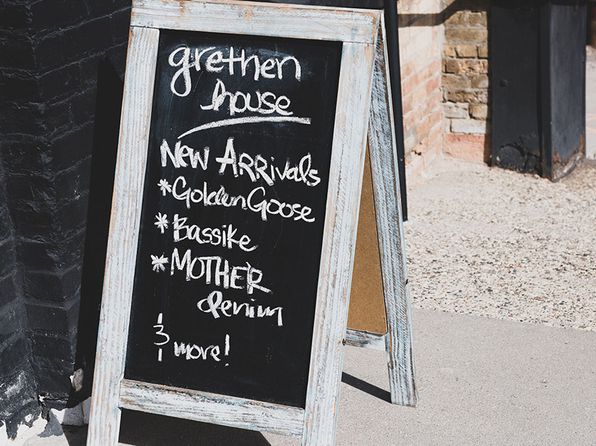 grethen
house
New Arrivals
* Golden Goose
* Bassike
* MOTHER
denim
& more!